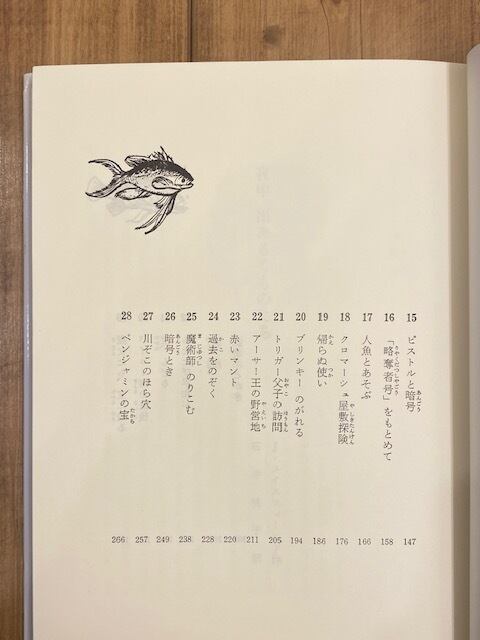 15 ピストルと暗号 147
16 「略奪者号」をもとめて 158
17 人魚とあそぶ 166
18 クロマーシュ屋敷探険 176
19 帰らぬ使い 186
20 ブリンキーのがれる 194
21 トリガー父子の訪問 205
22 アーサー王の野営地 211
23 赤いマント 220
24 過去をのぞく 228
25 魔術師のりこむ 238
26 暗号とき 249
27 川ぞこのほら穴 257
28 ベンジャミンの宝 266